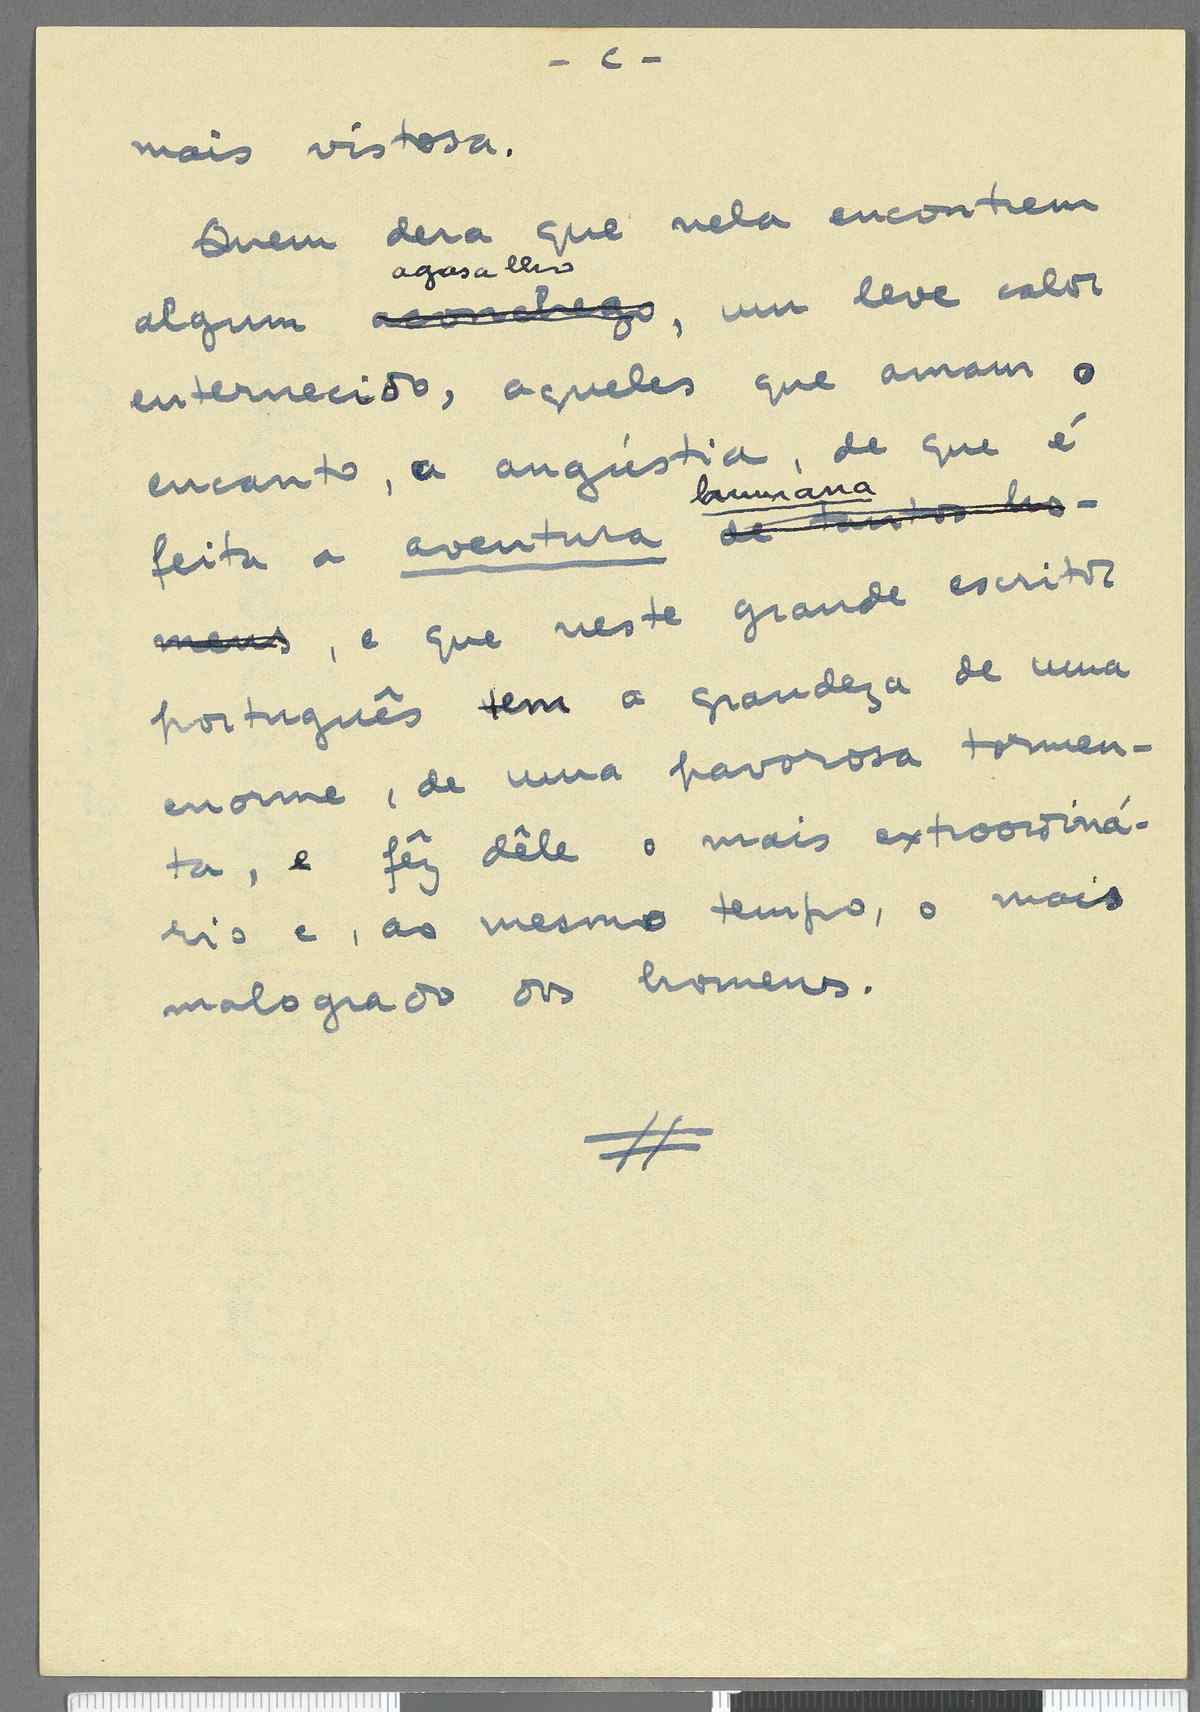 - c -
mais vistosa.
Quem dera que nela encontrem
agasalho
algum aconchego, um leve calor
enternecido, aqueles que amam o
encanto, a angústia, de que é
humana
feita a aventura de tantos ho-
mens, e que neste grande escritor
português tem a grandeza de uma
enorme, de uma pavorosa tormen-
ta, e fêz dêle o mais extraordiná-
rio e, ao mesmo tempo, o mais
malogrado dos homens.